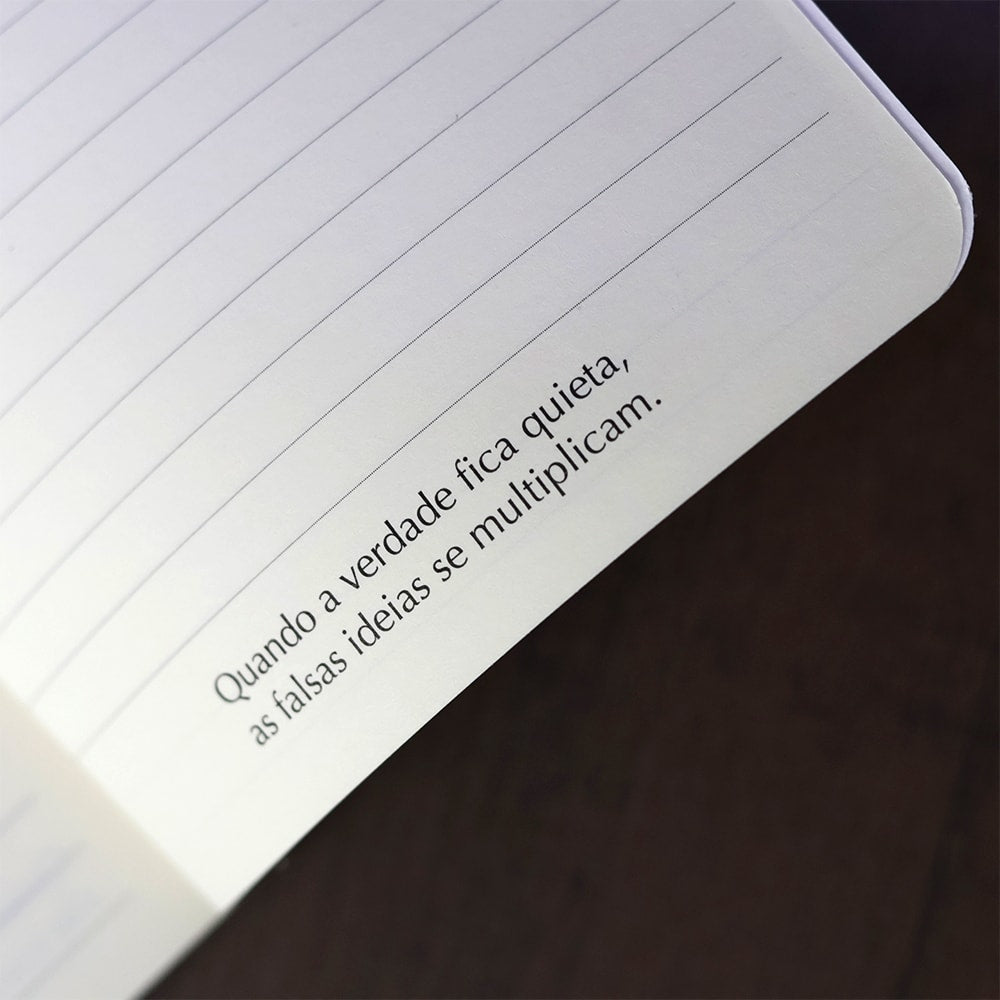 Quando a verdade fica quieta,
as falsas ideias se multiplicam.